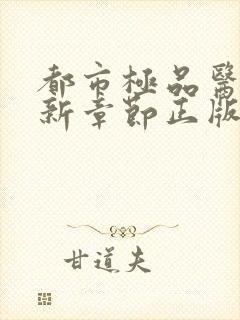 都市極品醫
新章節正版
甘道夫